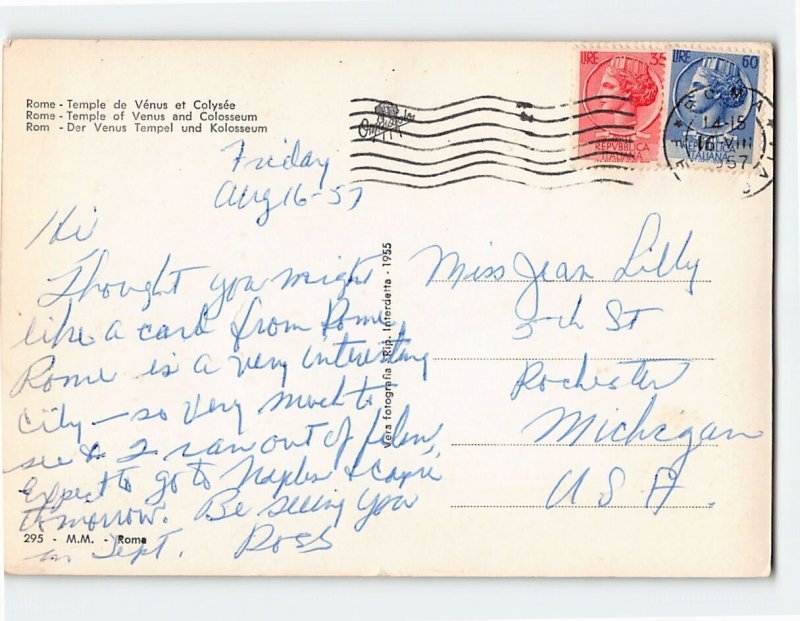 Rome - Temple de Vénus et Colysée
Rome - Temple of Venus and Colosseum
Rom - Der Venus Tempel und Kolosseum
LIRE 35
REPVBBLICA
ITALIANA
LIRE 60
REPVBBLICA
ITALIANA
ROMA
14-15
16 VIII
1957
Friday
Aug 16-57
Hi
Thought you might
like a card from Rome.
Rome is a very interesting
city - so very much to
see & I ran out of film.
Expect to go to Naples & Capri
tomorrow. Be seeing you
in Sept. Ross
295 - M.M. - Roma
Vera fotografia - Rip. Interdetta - 1955
Miss Jean Lilly
5th St
Rochester
Michigan
U S A.